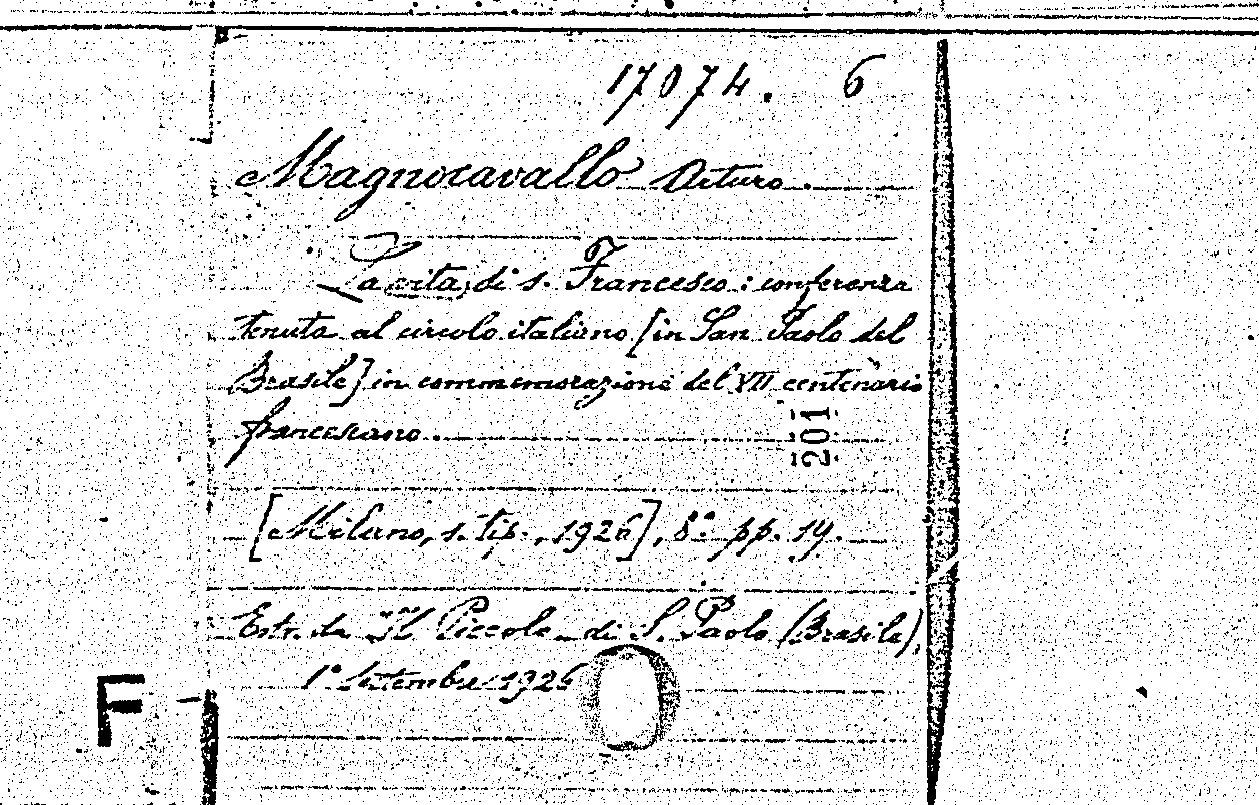 17074. 6
Magnocavallo Arturo.
La vita di s. Francesco: conferenza
tenuta al circolo italiano [in San Paolo del
Brasile] in commemorazione del VII centenario
francescano.
201
[Milano, s. tip., 1926], 8° pp. 14.
Estr. da Il Piccolo di S. Paolo (Brasile),
1° settembre 1926
F